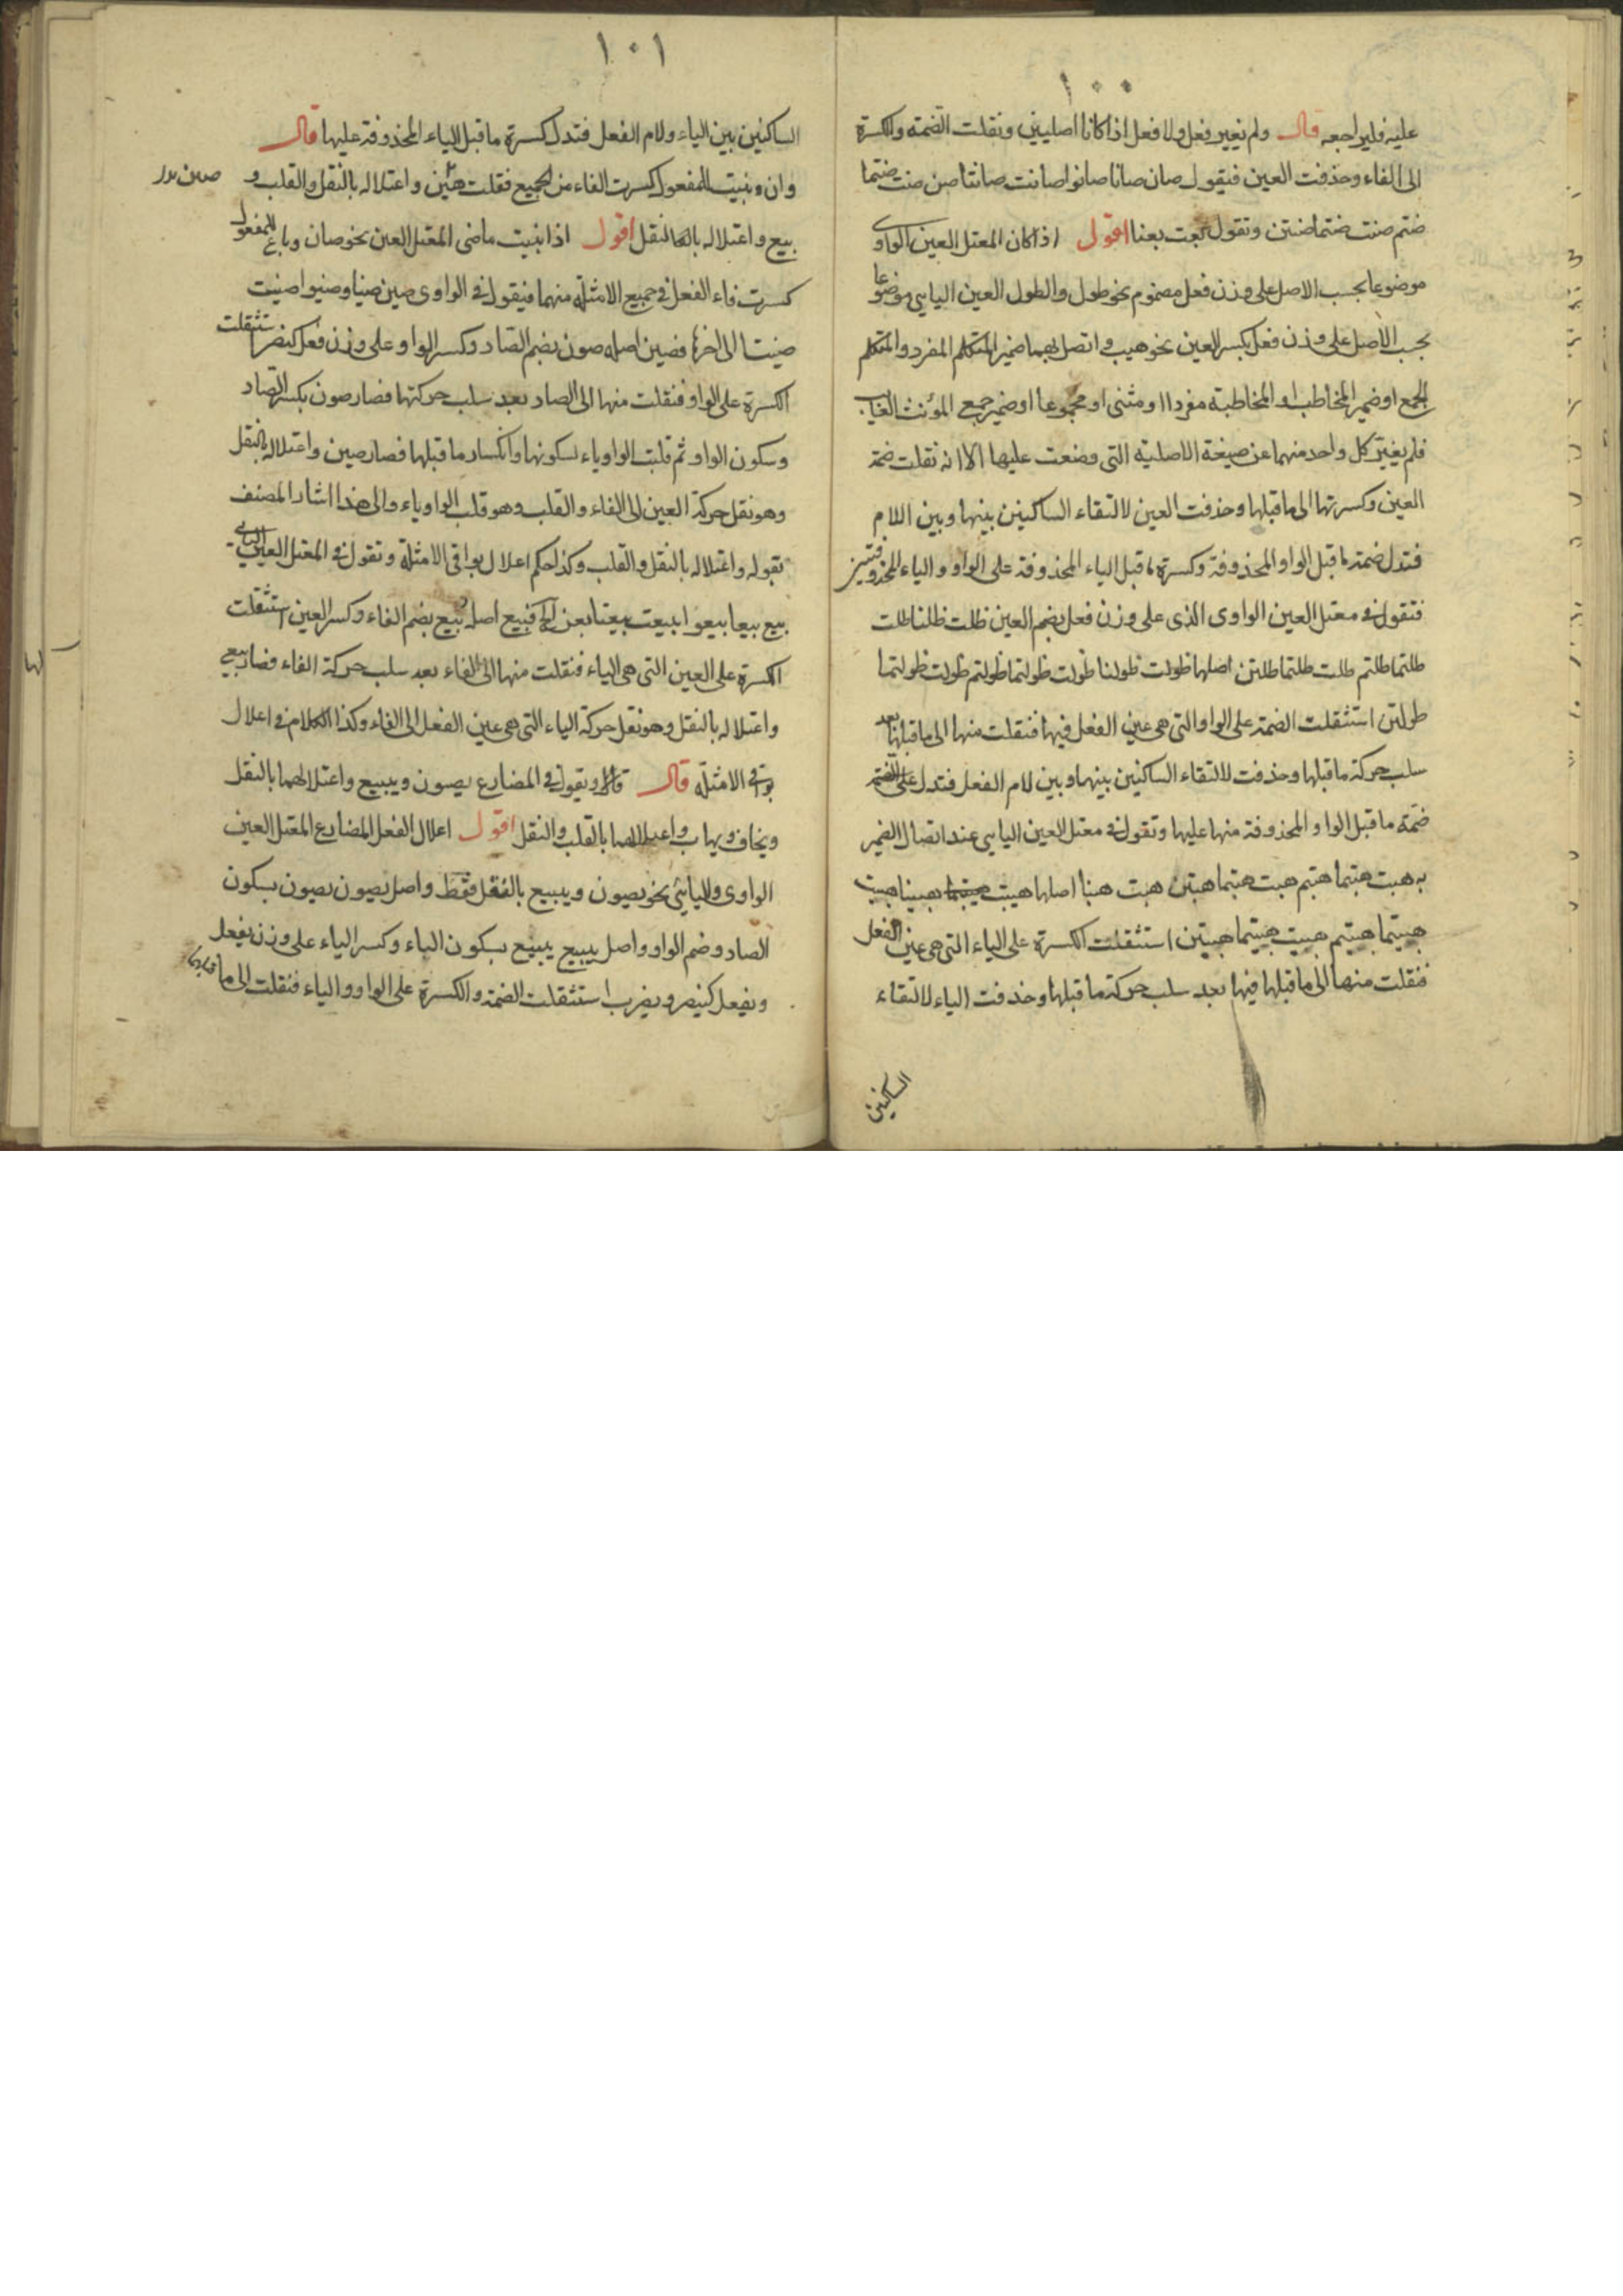 ١٠٠
عليه فليراجعه قال ولم يغير فعل ولا فعل اذا كانا اصليين ونقلت الضمة والكسرة
الى الفاء وحذفت العين فيقول صان صانا صانوا صانت صانتا صن صنت صنتما
صنتم صنت صنتما صنتن وتقول بعت بعنا اقول اذا كان المعتل العين الواوى
موضوعا بحسب الاصل على وزن فعل مضموم نحو طول والطول العين اليايى موضوعا
بحسب الاصل على وزن فعل بكسر العين نحو هيب واتصل بهما ضمير المتكلم المفرد والمتكلم
الجمع او ضمير المخاطب او المخاطبة مفردا او مثنى او مجموعا او ضمير جمع المؤنث الغايب
فلم يغير كل واحد منهما عن صيغة الاصلية التى وضعت عليها الا انه نقلت ضمة
العين وكسرتها الى ما قبلها وحذفت العين لالتقاء الساكنين بينها وبين اللام
فتدل ضمة ما قبل الواو المحذوفة وكسرة ما قبل الياء المحذوفة على الواو والياء المحذوفتين
فتقول فى معتل العين الواوى الذى على وزن فعل بضم العين طلت طلنا طلت
طلتما طلتم طلت طلتما طلتن اصلها طولت طولنا طولت طولتما طولتم طولت طولتما
طولتن استثقلت الضمة على الواو التى هى عين الفعل فيها فنقلت منها الى ما قبلها بعد
سلب حركة ما قبلها وحذفت لالتقاء الساكنين بينها وبين لام الفعل فتدل على الضم
ضمة ما قبل الواو المحذوفة منها عليها وتقول فى معتل العين اليايى عند اتصال الضمير
به هبت هبتما هبتم هبت هبتما هبتن هبت هبنا اصلها هيبت هيبتما هيبنا هيبت
هيبتما هيبتم هيبت هيبتما هيبتن استثقلت الكسرة على الياء التى هى عين الفعل
فنقلت منها الى ما قبلها فيها بعد سلب حركة ما قبلها وحذفت الياء لالتقاء
الساكنين
١٠١
الساكنين بين الياء ولام الفعل فتدل كسرة ما قبل الياء المحذوفة عليها قال
وان بنيت للمفعول كسرت الفاء من الجميع فقلت صين واعتلاله بالنقل والقلب و
بيع واعتلاله بالنقل اقول اذا بنيت ماضى المعتل العين نحو صان وباع للمفعول
كسرت فاء الفعل فى جميع الامثلة منهما فيقول فى الواوى صين صينا وصينوا صينت
صينتا الى اخرها فصين اصله صون بضم الصاد وكسر الواو على وزن فعل كنصر استثقلت
الكسرة على الواو فنقلت منها الى الصاد بعد سلب حركتها فصار صون بكسر الصاد
وسكون الواو ثم قلبت الواو ياء لسكونها وانكسار ما قبلها فصار صين واعتلاله بالنقل
وهو نقل حركة العين الى الفاء والقلب وهو قلب الواو ياء والى هذا اشار المصنف
بقوله واعتلاله بالنقل والقلب وكذا حكم اعلال بواقى الامثلة وتقول فى المعتل العين اليايى
بيع بيعا بيعوا بيعت بيعتا بعن الخ فبيع اصله بيع بضم الفاء وكسر العين استثقلت
الكسرة على العين التى هى الياء فنقلت منها الى الفاء بعد سلب حركة الفاء فصار بيع
واعتلاله بالنقل وهو نقل حركة الياء التى هى عين الفعل الى الفاء وكذا الكلام فى اعلال
بواقى الامثلة قال وتقول فى المضارع يصون ويبيع واعتلالهما بالنقل
ويخاف ويهاب واعتلالهما بالقلب والنقل اقول اعلال الفعل المضارع المعتل العين
الواوى واليائى نحو يصون ويبيع بالنقل فقط واصل يصون يصون بسكون
الصاد وضم الواو واصل يبيع يبيع بسكون الباء وكسر الياء على وزن يفعل
ويفعل كينصر ويضرب استثقلت الضمة والكسرة على الواو والياء فنقلت الى ما قبلها